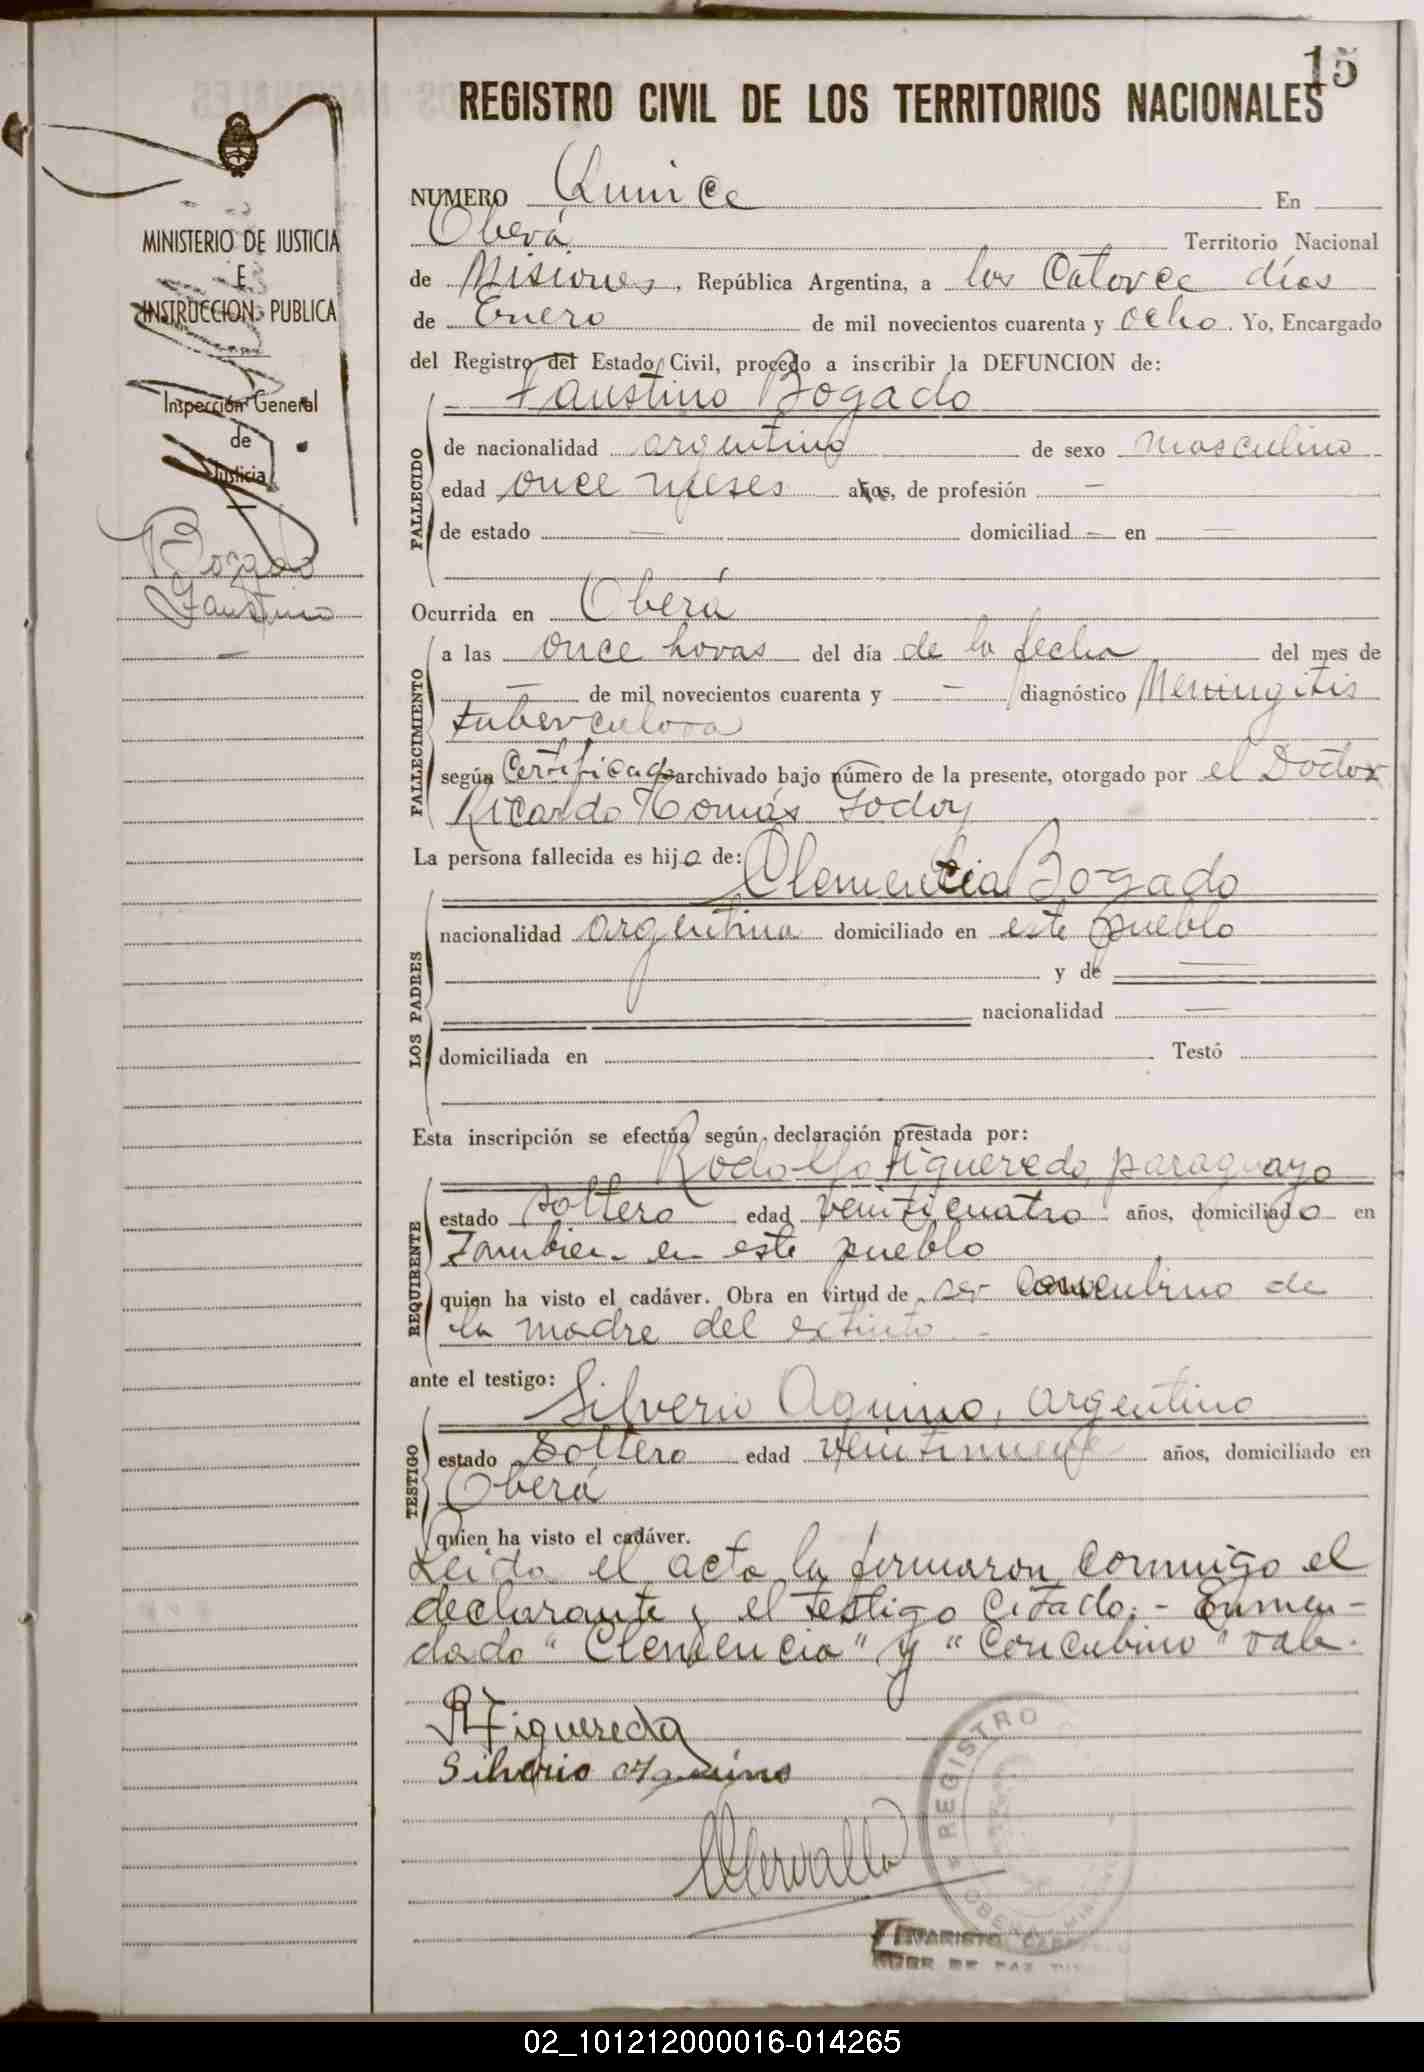 15
REGISTRO CIVIL DE LOS TERRITORIOS NACIONALES
MINISTERIO DE JUSTICIA
E
INSTRUCCION PUBLICA
Inspección General
de
Justicia
Bogado
Faustino
NUMERO Quince En
Oberá Territorio Nacional
de Misiones, República Argentina, a los Catorce días
de Enero de mil novecientos cuarenta y ocho. Yo, Encargado
del Registro del Estado Civil, procedo a inscribir la DEFUNCION de:
Faustino Bogado
FALLECIDO
de nacionalidad argentino de sexo masculino
edad once meses años, de profesión —
de estado — domiciliad — en —
Ocurrida en Oberá
FALLECIMIENTO
a las once horas del día de la fecha del mes de
— de mil novecientos cuarenta y — diagnóstico Meningitis
tuberculosa
según Certificado archivado bajo número de la presente, otorgado por el Doctor
Ricardo Tomás Godoy
La persona fallecida es hijo de:
Clemencia Bogado
LOS PADRES
nacionalidad argentina domiciliado en este pueblo
y de —
nacionalidad —
domiciliada en Testó
Esta inscripción se efectúa según declaración prestada por:
Rodolfo Figueredo, paraguayo
REQUIRENTE
estado soltero edad veinticuatro años, domiciliado en
Tambien en este pueblo
quien ha visto el cadáver. Obra en virtud de ser Concubino de
la madre del extinto -
ante el testigo:
Silverio Aquino, argentino
TESTIGO
estado Soltero edad veintinueve años, domiciliado en
Oberá
quien ha visto el cadáver.
Leida el acta la firmaron conmigo el
declarante y el testigo Citado.- Enmen-
dado "Clemencia" y "Concubino" vale.
RFigueredo
Silverio Aquino
REGISTRO
EVARISTO
02_101212000016-014265